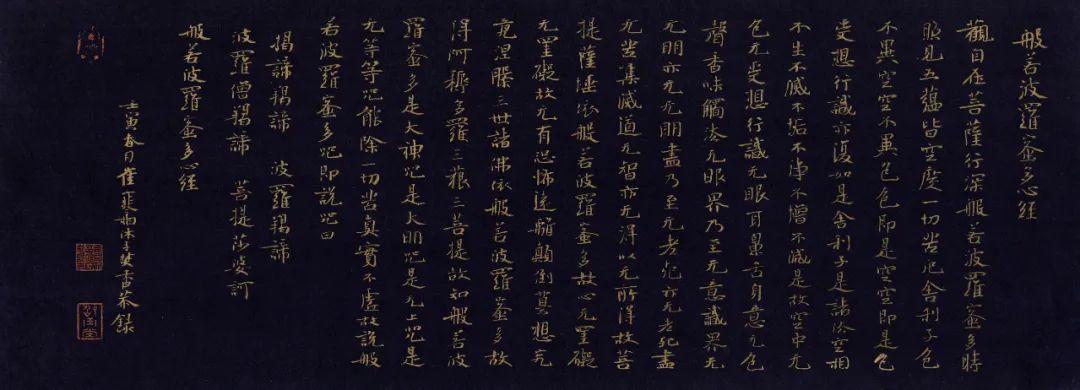 般若波羅蜜多心經
觀自在菩薩行深般若波羅蜜多時
照見五蘊皆空度一切苦厄舍利子色
不異空空不異色色即是空空即是色
受想行識亦復如是舍利子是諸法空相
不生不滅不垢不淨不增不減是故空中无
色无受想行識无眼耳鼻舌身意无色
聲香味觸法无眼界乃至无意識界无
无明亦无无明盡乃至无老死亦无老死盡
无苦集滅道无智亦无得以无所得故菩
提薩埵依般若波羅蜜多故心无罣礙
无罣礙故无有恐怖遠離顛倒夢想究
竟涅槃三世諸佛依般若波羅蜜多故
得阿耨多羅三藐三菩提故知般若波
羅蜜多是大神咒是大明咒是无上咒是
无等等咒能除一切苦真實不虛故說般
若波羅蜜多咒即說咒曰
揭諦揭諦 波羅揭諦
波羅僧揭諦 菩提莎婆訶
般若波羅蜜多心經
壬寅春日 恭錄